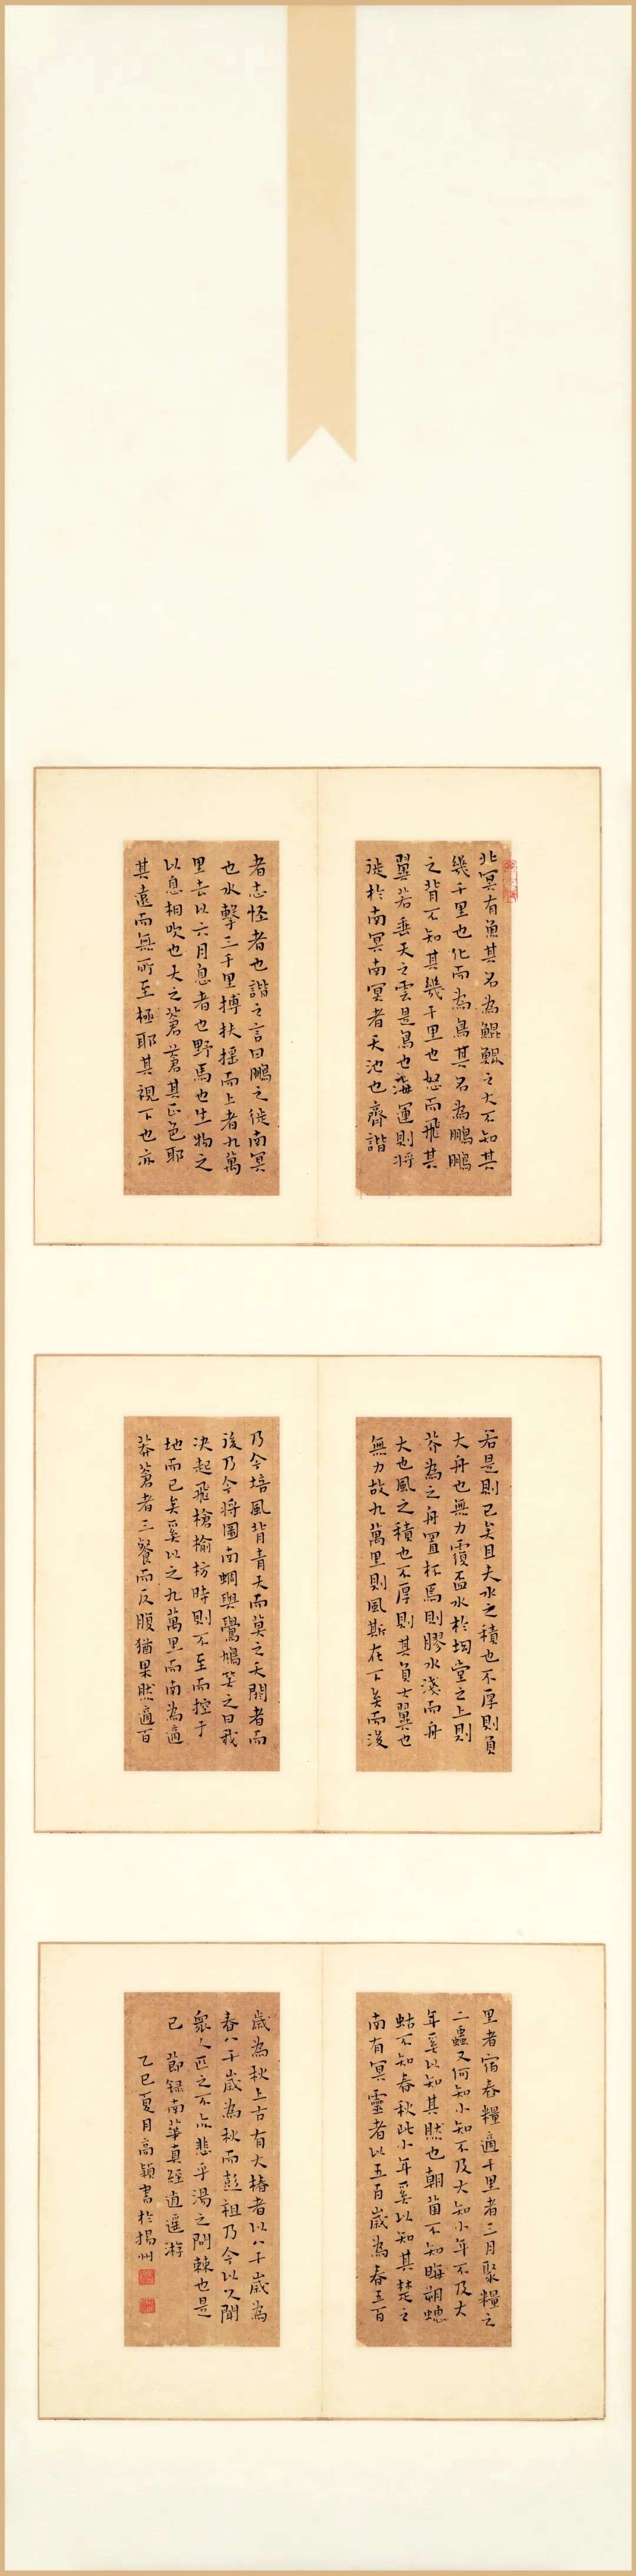 北冥有魚其名為鯤鯤之大不知其
幾千里也化而為鳥其名為鵬鵬
之背不知其幾千里也怒而飛其
翼若垂天之雲是鳥也海運則將
徙於南冥南冥者天池也齊諧
者志怪者也諧之言曰鵬之徙南冥
也水擊三千里摶扶搖而上者九萬
里去以六月息者也野馬也生物之
以息相吹也天之蒼蒼其正色耶
其遠而無所至極耶其視下也亦
若是則已矣且夫水之積也不厚則負
大舟也無力覆盃水於坳堂之上則
芥為之舟置杯焉則膠水淺而舟
大也風之積也不厚則其負大翼也
無力故九萬里則風斯在下矣而後
乃今培風背青天而莫之夭閼者而
後乃今將圖南蜩與鷽鳩笑之曰我
決起飛槍榆枋時則不至而控于
地而已矣奚以之九萬里而南為適
莽蒼者三餐而反腹猶果然適百
里者宿舂糧適千里者三月聚糧之
二蟲又何知小知不及大知小年不及大
年奚以知其然也朝菌不知晦朔蟪
蛄不知春秋此小年奚以知其楚之
南有冥靈者以五百歲為春五百
歲為秋上古有大椿者以八千歲為
春八千歲為秋而彭祖乃今以久聞
眾人匹之不亦悲乎湯之問棘也是
已 節録南華真經逍遙游
乙巳夏月高穎書於揚州